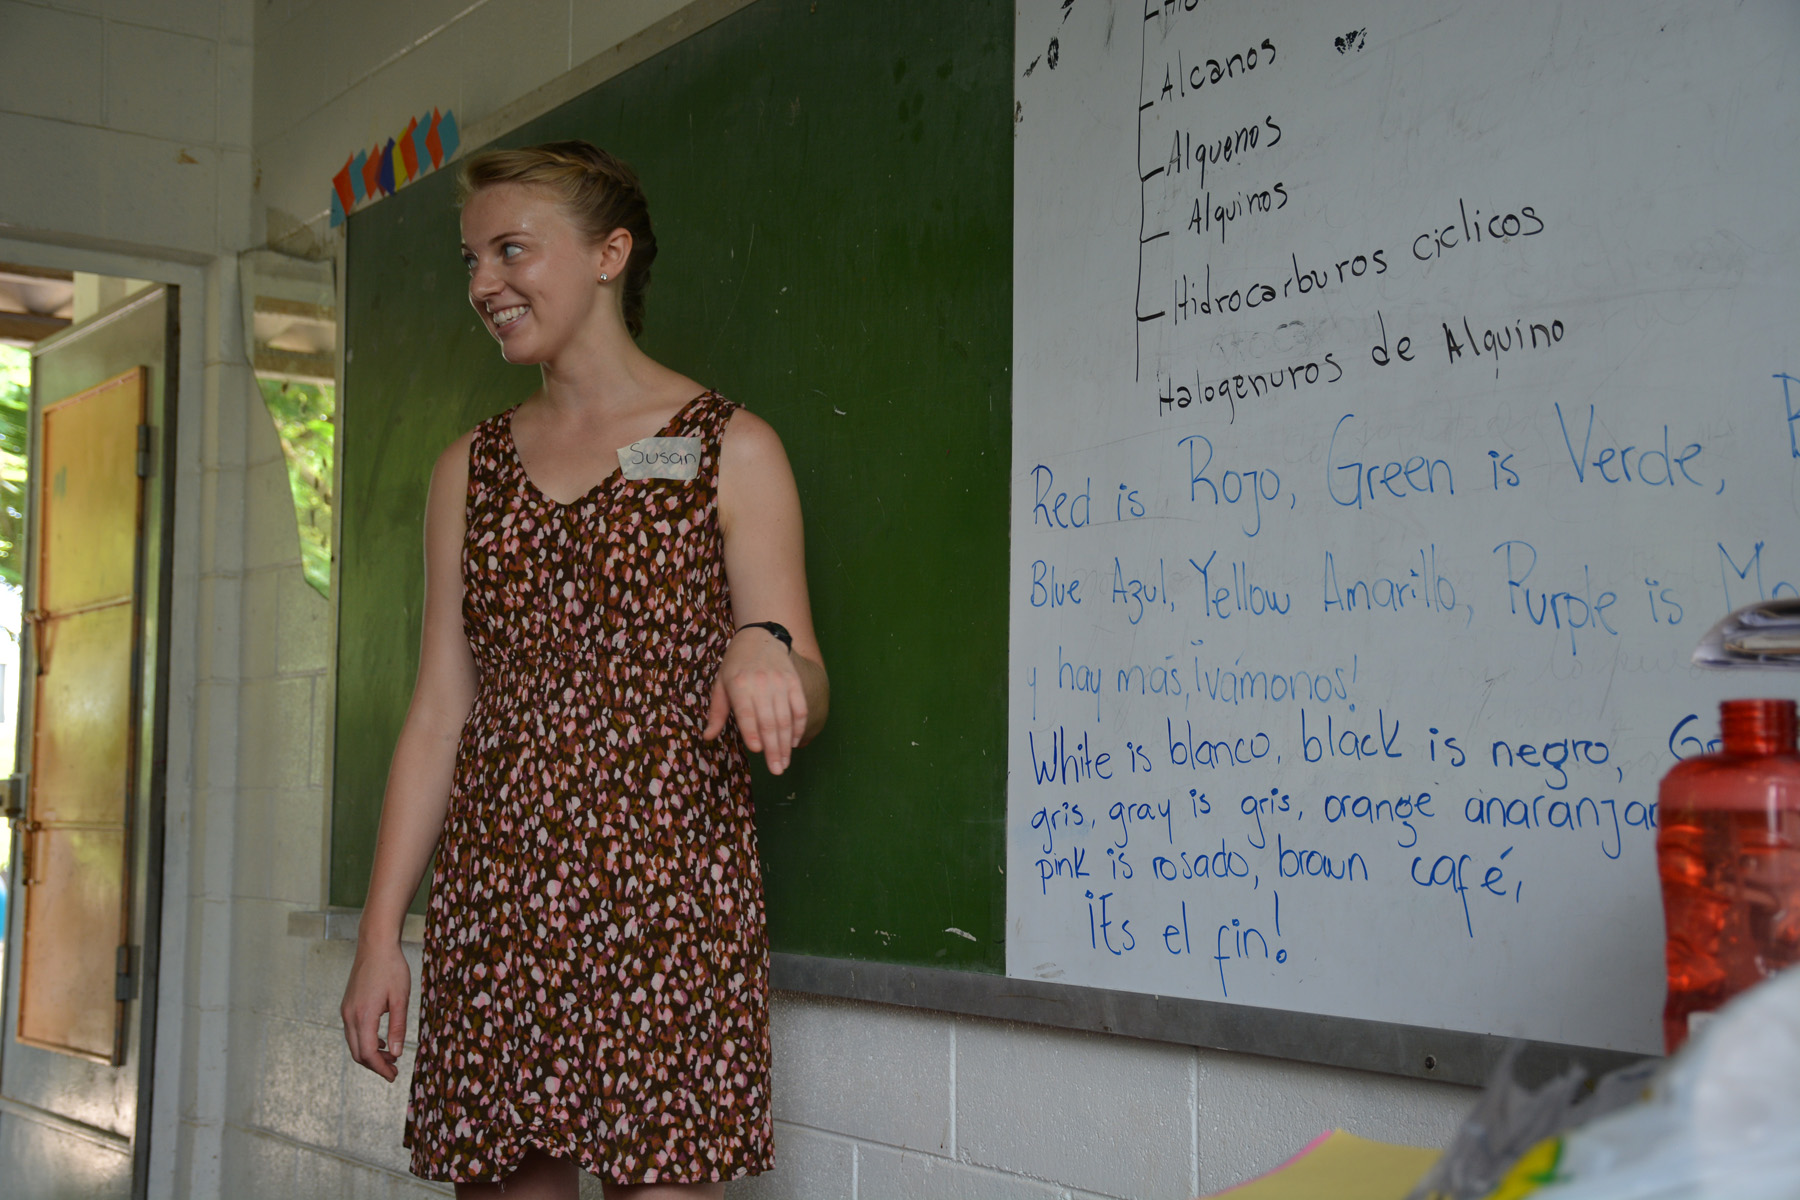 Alcanos
Alquenos
Alquinos
Hidrocarburos ciclicos
Halogenuros de Alquino
Red is Rojo, Green is Verde,
Blue Azul, Yellow Amarillo, Purple is
y hay más, ¡vámonos!
White is blanco, black is negro,
gris, gray is gris, orange
pink is rosado, brown café,
¡Es el fin!
Susan